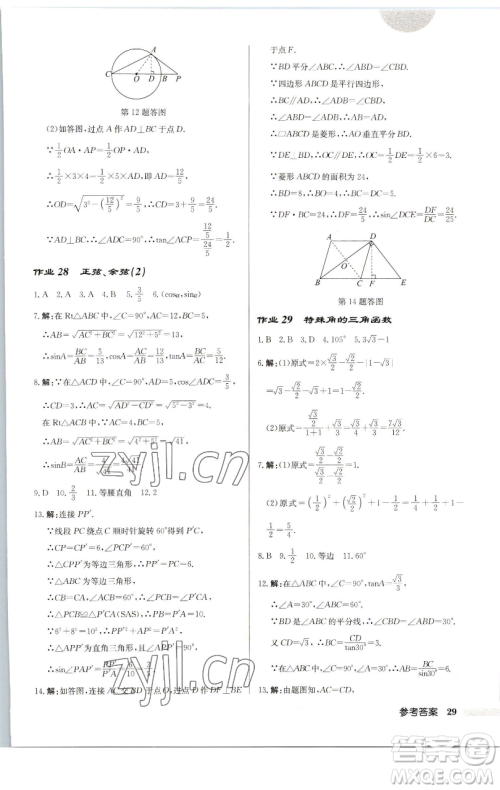 第12题答图
(2)如答图,过点A作AD⊥BC于点D.
∵1/2 OA·AP=1/2 OP·AD,
∴1/2×3×4=1/2×5×AD,即AD=12/5.
∴OD=√(3²-(12/5)²)=9/5,∴CD=3+9/5=24/5.
∵AD⊥BC,∴∠ADC=90°,∴tan∠ACP=(12/5)/(24/5)=1/2.
作业28 正弦、余弦(2)
1.A 2.A 3.A 4.B 5.3/5 6.(cosα,sinα)
7.解:∵在Rt△ABC中,∠C=90°,AC=12,BC=5,
∴AB=√(AC²+BC²)=√(12²+5²)=13,
∴sinA=BC/AB=5/13,∴cosA=AC/AB=12/13.
8.解:∵在Rt△ACD中,∠C=90°,cos∠ADC=3/5,
∴CD=3,∴AC=√(AD²-CD²)=√(5²-3²)=4.
在Rt△ACB中,
∴AB=√(AC²+BC²)=√(4²+5²)=√41,
∴sinB=AC/AB=4/√41=4√41/41.
9.D 10.2/3 11.等腰直角 12.2
13.解:连接PP′.
∵线段PC绕点C顺时针旋转60°得到P′C,
∴CP=CP′=6,∠PCP′=60°,
∴△CPP′为等边三角形,
∵△ABC为等边三角形,∴∠PCB=∠P′CA,
∴△PCB≌△P′CA(SAS),∴PB=P′A=10.
∵6²+8²=10²,∴PP′²+AP²=P′A²,
∴△APP′为直角三角形,且∠APP′=90°,
∴sin∠PAP′=PP′/P′A=6/10=3/5.
14.解:如答图,连接AC交BD于点O,过点D作DF⊥BE
于点F.
∵BD平分∠ABC,∴∠ABD=∠CBD.
∵四边形ABCD是平行四边形,
∴BC∥AD,∴∠ADB=∠CBD=∠ABD,∴AB=AD,
∴▱ABCD是菱形,∴AO垂直平分BD.
∵DE⊥BD,∴OC∥ED,∴OC=1/2DE=1/2×6=3.
∵菱形ABCD的面积为24,
∵BC·DF=24,∴DF=24/5,∴sin∠DCE=DF/DC=24/25.
第14题答图
作业29 特殊角的三角函数
1.B 2.B 3.D 4.105° 5.3√3-1
6.解:(1)原式=2×√3/2-√2/2=√3-√2/2.
7.解:
(2)原式=(1/2)²+(√2/2)²+1/2×1=1/4+1/2+
1/2=5/4.
8.B 9.1/2 10.等边 11.60°
12.解:∵在△ABC中,∠C=90°,tanA=√3/3,
∴∠A=30°,∴∠ABC=60°.
∵BD是∠ABC的平分线,∴∠CBD=∠ABD=30°,
又∵CD=√3,∴BC=CD/tan30°=3,∴AB=BC/sin30°=6.
13.解:由题意知,AC=CD,
参考答案 29
zyjl.cn
zyjl.cn